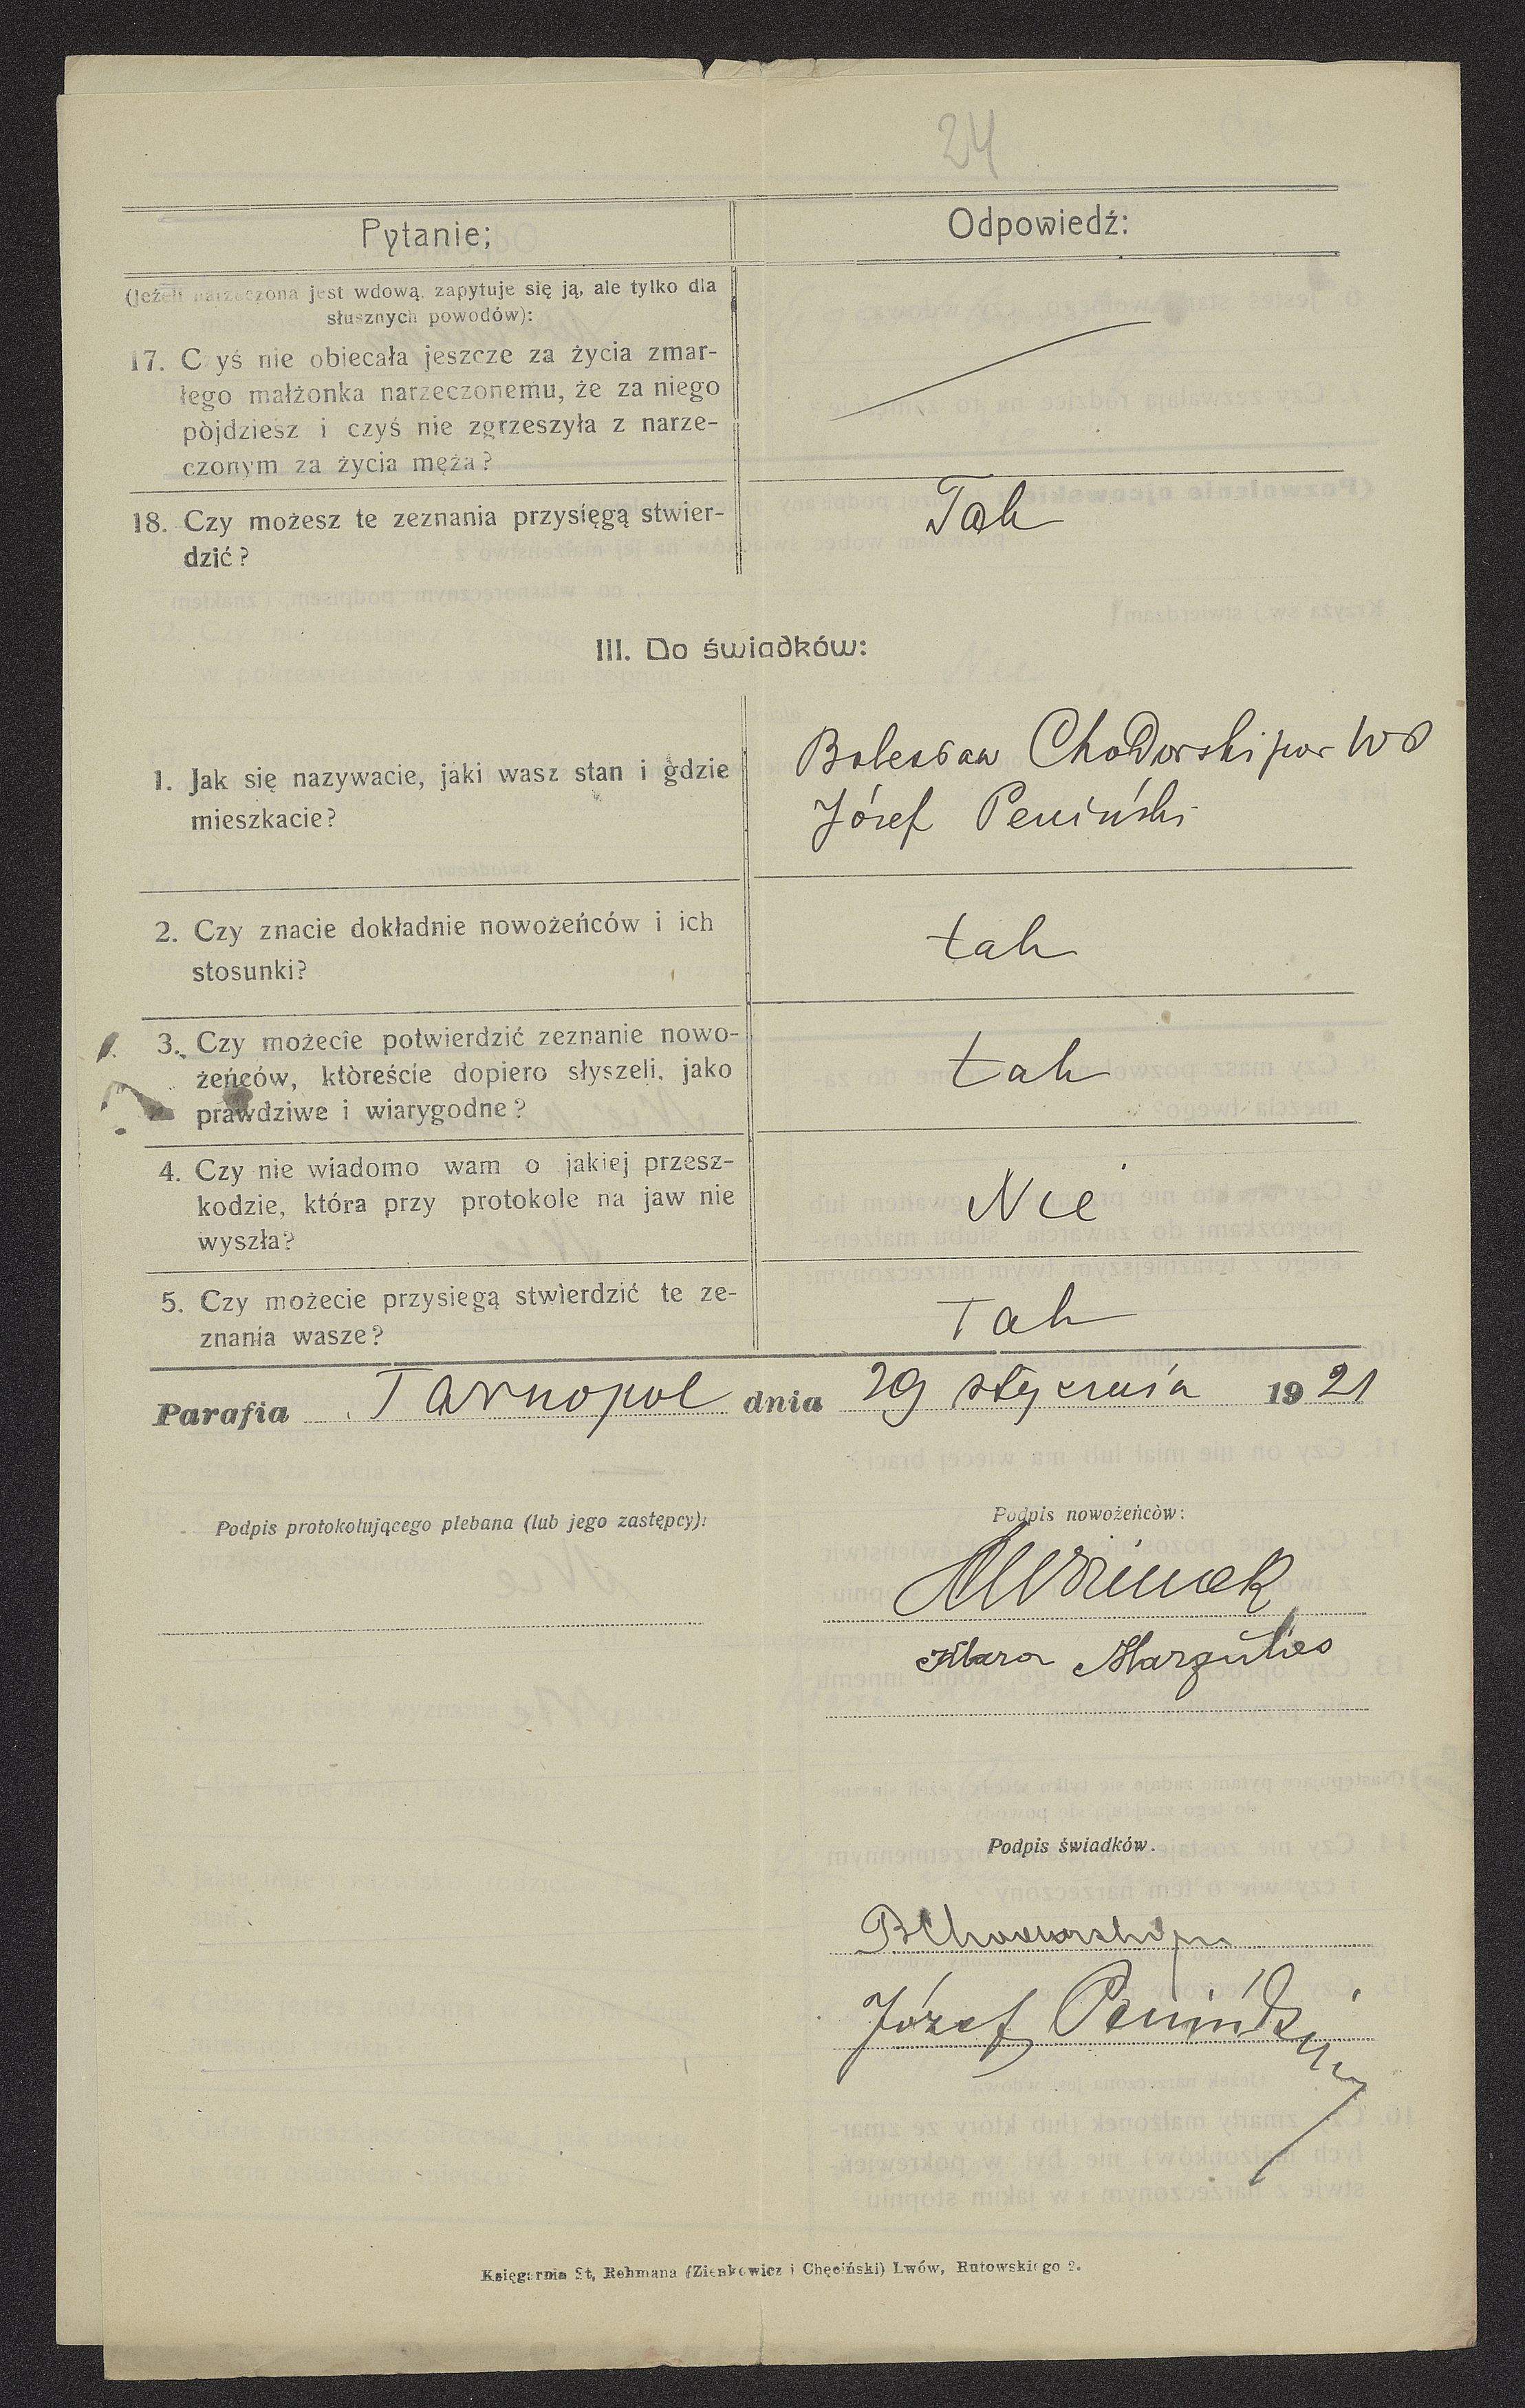 24
Pytanie;
Odpowiedź:
(Jeżeli narzeczona jest wdową, zapytuje się ją, ale tylko dla
słusznych powodów):
17. Czyś nie obiecała jeszcze za życia zmar-
łego małżonka narzeczonemu, że za niego
pòjdziesz i czyś nie zgrzeszyła z narze-
czonym za życia męża?
18. Czy możesz te zeznania przysięgą stwier-
dzić?
Tak
III. Do świadków:
1. Jak się nazywacie, jaki wasz stan i gdzie
mieszkacie?
Bolesław Chodorski por WP
Józef Peniński
2. Czy znacie dokładnie nowożeńców i ich
stosunki?
tak
3. Czy możecie potwierdzić zeznanie nowo-
żeńców, ktòreście dopiero słyszeli, jako
prawdziwe i wiarygodne?
tak
4. Czy nie wiadomo wam o jakiej przesz-
kodzie, która przy protokole na jaw nie
wyszła?
Nie
5. Czy możecie przysiegą stwierdzić te ze-
znania wasze?
Tak
Parafia Tarnopol dnia 29 stycznia 1921
Podpis protokołującego plebana (lub jego zastępcy):
Podpis nowożeńcòw:
Klara Margulies
Podpis świadków.
BChodorski por
Józef Peniński
Księgarnia St, Rehmana (Zienkowicz i Chęciński) Lwów, Rutowskiego 2.